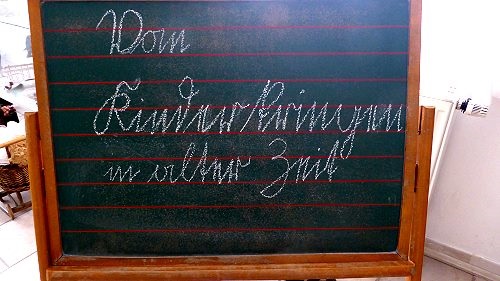 Vom
Kinderkriegen
in alter Zeit